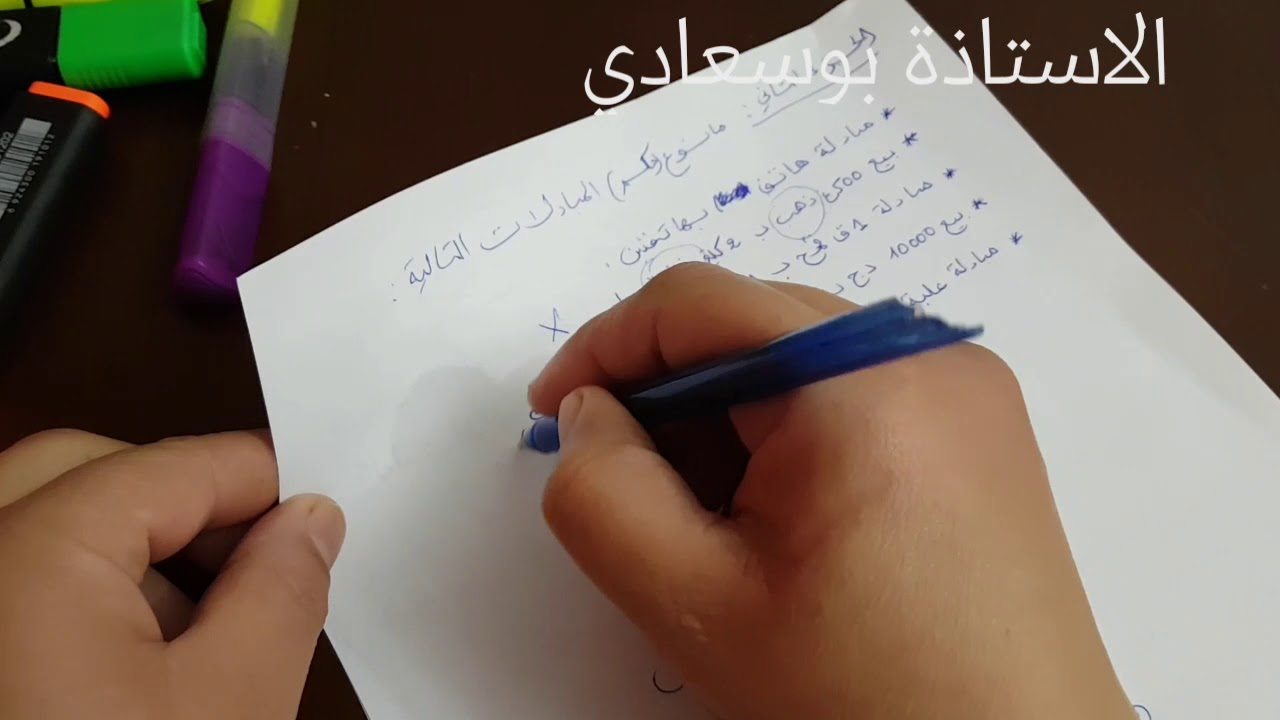 الاستاذة بوسعادي
مانوع (حكم) المبادلات التالية :
* مبادلة هاتف بهاتفين .
* بيع 500غ ذهب ب 2 كلغ
* مبادلة 1 ق قمح ب
* بيع 10000 دج ب
* مبادلة علبة